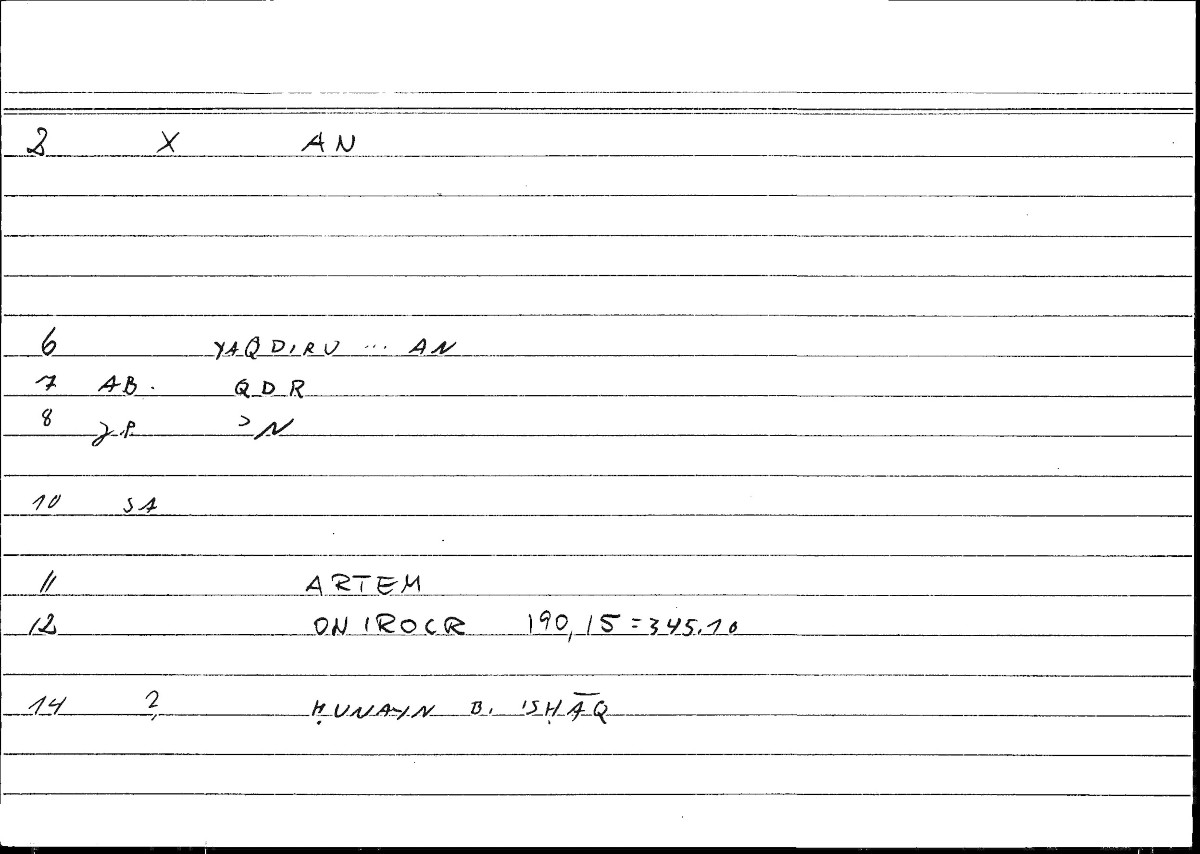 2 X AN
6 YAQDIRU ... AN
7 AB. QDR
8 J.P. ᵓN
10 SA
11 ARTEM
12 ONIROCR 190,15=345.10
14 2, ḤUNAYN B. ISḤĀQ